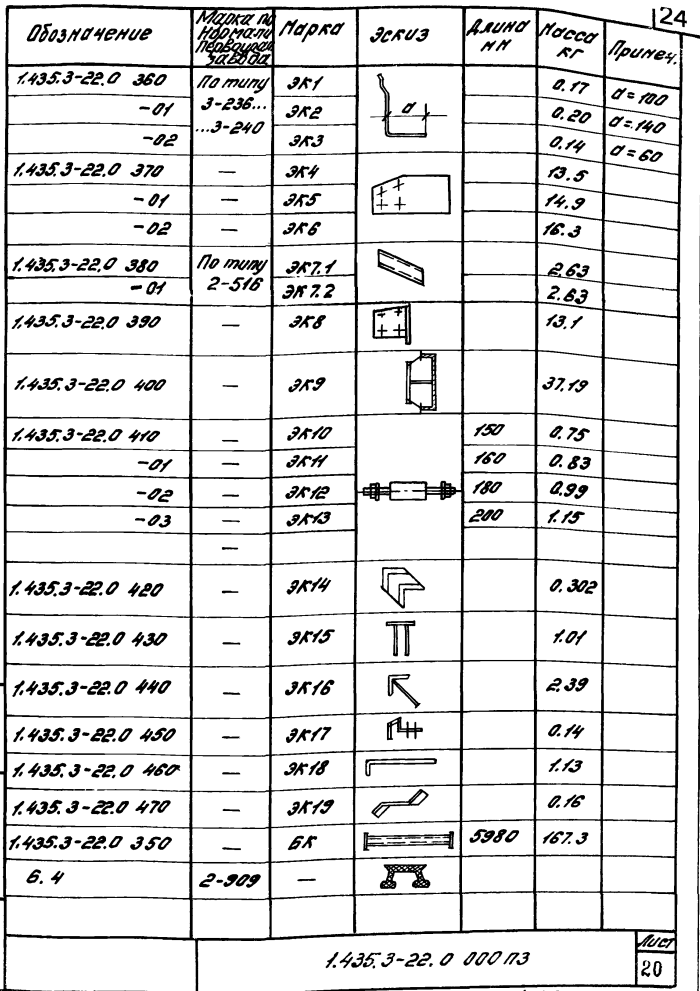 124
Обозначение Марка по нормали Первоурал. завода Марка Эскиз Длина мм Масса кг Примеч.
1.435.3-22.0 360 По типу ЭК1 0.17 а=100
-01 3-236... ЭК2 а 0.20 а=140
-02 ...3-240 ЭК3 0.14 а=60
1.435.3-22.0 370 — ЭК4 13.5
-01 — ЭК5 14.9
-02 — ЭК6 16.3
1.435.3-22.0 380 По типу ЭК7.1 2.63
-01 2-516 ЭК7.2 2.63
1.435.3-22.0 390 — ЭК8 13.1
1.435.3-22.0 400 — ЭК9 37.19
1.435.3-22.0 410 — ЭК10 150 0.75
-01 — ЭК11 160 0.83
-02 — ЭК12 180 0.99
-03 — ЭК13 200 1.15
—
1.435.3-22.0 420 — ЭК14 0.302
1.435.3-22.0 430 — ЭК15 1.01
1.435.3-22.0 440 — ЭК16 2.39
1.435.3-22.0 450 — ЭК17 0.14
1.435.3-22.0 460 — ЭК18 1.13
1.435.3-22.0 470 — ЭК19 0.16
1.435.3-22.0 350 — БК 5980 167.3
Б. 4 2-909 —
1.435.3-22.0 000 ПЗ
Лист
20